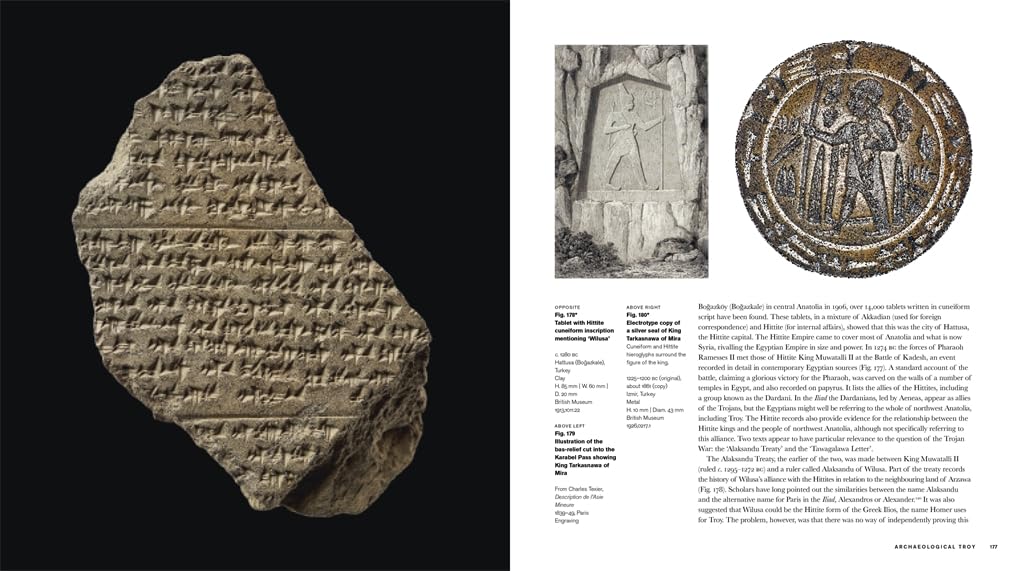 OPPOSITE
Fig. 178*
Tablet with Hittite
cuneiform inscription
mentioning 'Wilusa'
c. 1280 BC
Hattusa (Boğazkale),
Turkey
Clay
H. 85 mm | W. 60 mm |
D. 20 mm
British Museum
1913,1011.22
ABOVE LEFT
Fig. 179
Illustration of the
bas-relief cut into the
Karabel Pass showing
King Tarkasnawa of
Mira
From Charles Texier,
Description de l'Asie
Mineure
1839–49, Paris
Engraving
ABOVE RIGHT
Fig. 180*
Electrotype copy of
a silver seal of King
Tarkasnawa of Mira
Cuneiform and Hittite
hieroglyphs surround the
figure of the king.
1225–1200 BC (original),
about 1861 (copy)
Izmir, Turkey
Metal
H. 10 mm | Diam. 43 mm
British Museum
1926,0217.1
Boğazköy (Boğazkale) in central Anatolia in 1906, over 14,000 tablets written in cuneiform
script have been found. These tablets, in a mixture of Akkadian (used for foreign
correspondence) and Hittite (for internal affairs), showed that this was the city of Hattusa,
the Hittite capital. The Hittite Empire came to cover most of Anatolia and what is now
Syria, rivalling the Egyptian Empire in size and power. In 1274 BC the forces of Pharaoh
Ramesses II met those of Hittite King Muwatalli II at the Battle of Kadesh, an event
recorded in detail in contemporary Egyptian sources (Fig. 177). A standard account of the
battle, claiming a glorious victory for the Pharaoh, was carved on the walls of a number of
temples in Egypt, and also recorded on papyrus. It lists the allies of the Hittites, including
a group known as the Dardani. In the Iliad the Dardanians, led by Aeneas, appear as allies
of the Trojans, but the Egyptians might well be referring to the whole of northwest Anatolia,
including Troy. The Hittite records also provide evidence for the relationship between the
Hittite kings and the people of northwest Anatolia, although not specifically referring to
this alliance. Two texts appear to have particular relevance to the question of the Trojan
War: the 'Alaksandu Treaty' and the 'Tawagalawa Letter'.
The Alaksandu Treaty, the earlier of the two, was made between King Muwatalli II
(ruled c. 1295–1272 BC) and a ruler called Alaksandu of Wilusa. Part of the treaty records
the history of Wilusa's alliance with the Hittites in relation to the neighbouring land of Arzawa
(Fig. 178). Scholars have long pointed out the similarities between the name Alaksandu
and the alternative name for Paris in the Iliad, Alexandros or Alexander. It was also
suggested that Wilusa could be the Hittite form of the Greek Ilios, the name Homer uses
for Troy. The problem, however, was that there was no way of independently proving this
ARCHAEOLOGICAL TROY 177